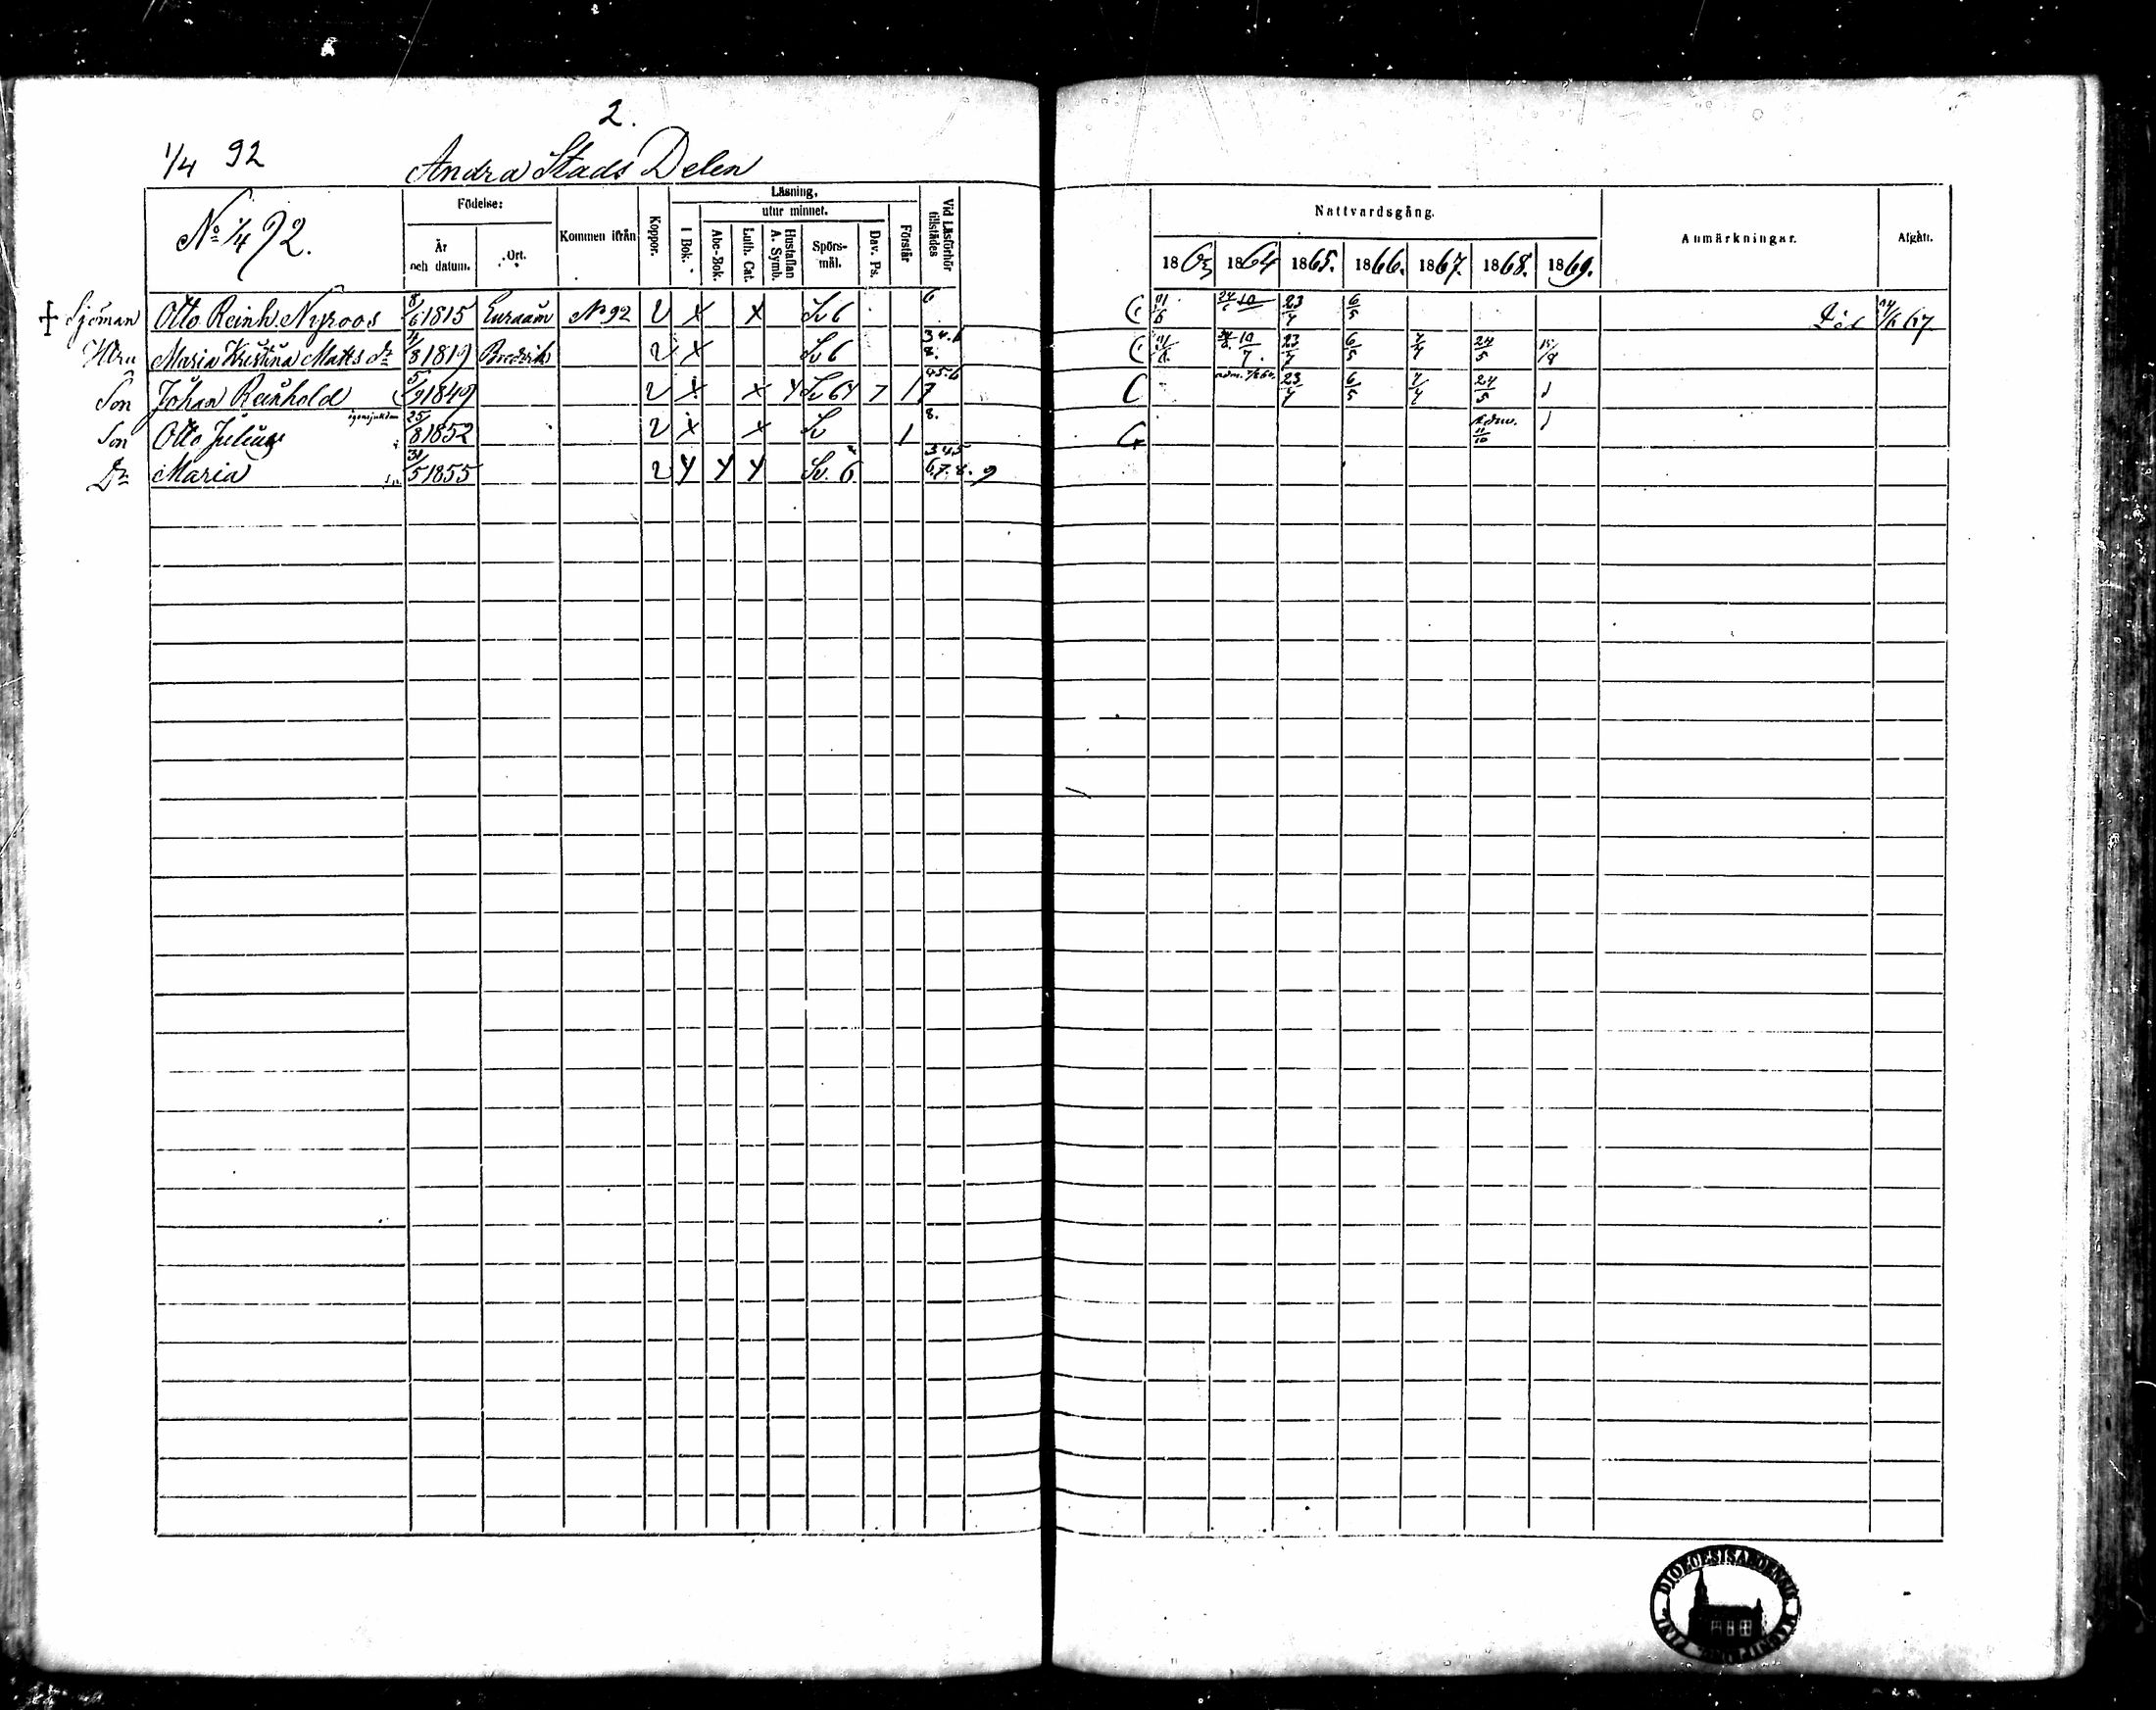 2.
1/4 92 Andra Stads Delen
No 1/4 92.
Födelse: År och datum. Ort. Kommen ifrån Koppor. Läsning, I Bok. utur minnet. Abc-Bok. Luth. Cat. Hustaflan A. Symb. Spörsmål. Dav. Ps. Förstår Vid Läsförhör tillstädes
Nattvardsgång. 1863 1864 1865. 1866. 1867. 1868. 1869. Anmärkningar. Afgått.
+ Sjöman Otto Reinh. Nyroos 8/6 1815 Euraåm No 92 2 X X Sv 6 6 23/4 6/5 Död 67
Hru Maria Kristina Matts dr 1/8 1819 2 X Sv 6 3 4. 6 8. 10/7. 23/4 6/5 7/4 24/5
Son Johan Reinhold 5/9 1849 2 X X Y Sv 6 7 1 4 5 6 7 23/4 6/5 7/4 24/5
Son Otto Julius 25/8 1852 2 X X Sv 1 8. 11/10
Dr Maria 31/5 1855 2 Y Y Y Sv. 6 3 4 5 6. 7. 8. 9